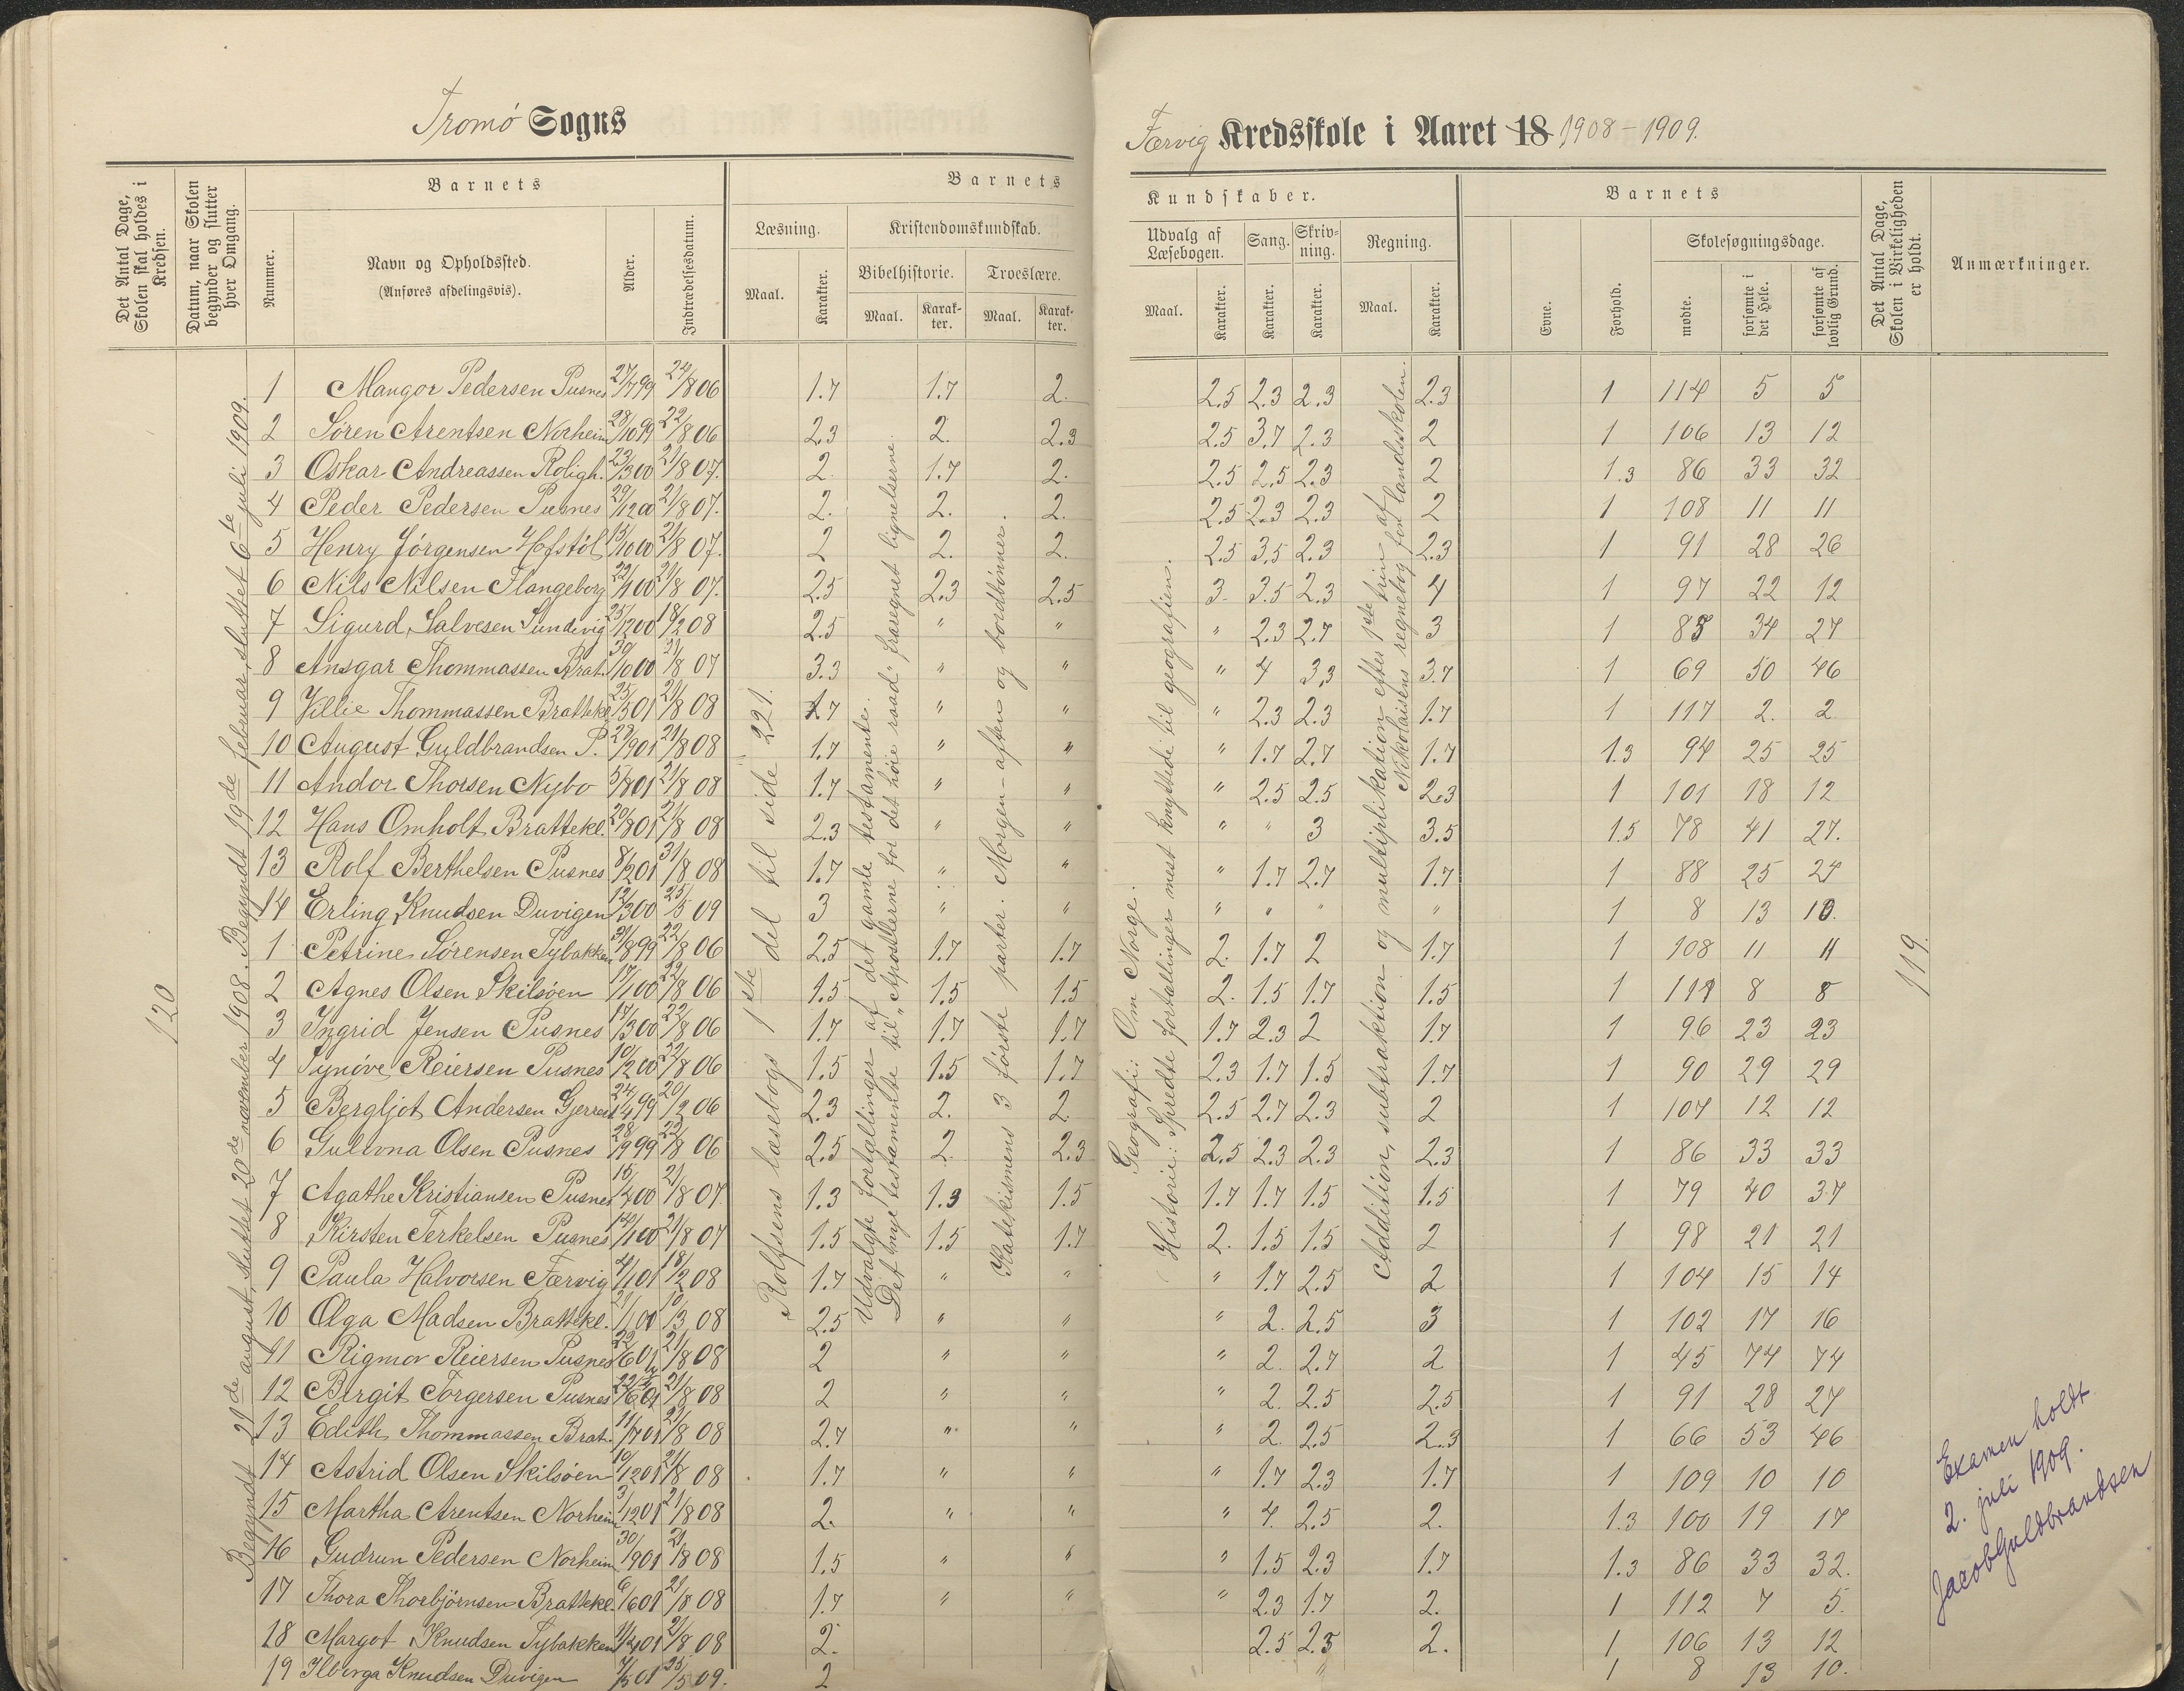 Tromö Sogns
Færvig Kredsskole i Aaret 18 1908-1909.
Det Antal Dage, Skolen skal holdes i Kredsen.
Datum, naar Skolen begynder og slutter hver Omgang.
Barnets
Nummer.
Navn og Opholdssted.
(Anføres afdelingsvis).
Alder.
Indtrædelsesdatum.
Barnets
Læsning.
Maal.
Karakter.
Kristendomskundskab.
Bibelhistorie.
Maal.
Karakter.
Troeslære.
Maal.
Karakter.
Kundskaber.
Udvalg af Læsebogen.
Maal.
Karakter.
Sang.
Karakter.
Skrivning.
Karakter.
Regning.
Maal.
Karakter.
Barnets
Evne.
Forhold.
Skolesøgningsdage.
mødte.
forsømte i det Hele.
forsømte af lovlig Grund.
Det Antal Dage, Skolen i Virkeligheden er holdt.
Anmærkninger.
120
Begyndt 21de august, sluttet 20de november 1908. Begyndt 19de februar, sluttet 6te juli 1909.
Rolfsens læsebogs 1ste del til side 221.
Udvalgte fortællinger af det gamle testamente.
Det nye testamente til "Apostlerne for det høie raad", fraregnet lignelserne.
Katekismens 3 første parter. Morgen- aften og bordbønner.
Geografi: Om Norge.
Historie: Spredte fortællinger mest knyttede til geografien.
Addition, subtraktion og multiplikation efter 1ste trin af
Nikolaisens regnebog for landsskolen.
1 Mangor Pedersen Pusnes 27/7 99 22/8 06 1.7 1.7 2. 2.5 2.3 2.3 2.3 1 114 5 5
2 Sören Arentsen Norheim 28/10 99 22/8 06 2.3 2. 2.3 2.5 3.7 2.3 2 1 106 13 12
3 Oskar Andreassen Roligh. 23/3 00 21/8 07. 2. 1.7 2. 2.5 2.5 2.3 2 1.3 86 33 32
4 Peder Pedersen Pusnes 29/12 00 21/8 07. 2. 2. 2. 2.5 2.3 2.3 2 1 108 11 11
5 Henry Jörgensen Hofstöl 15/10 00 21/8 07. 2 2. 2. 2.5 3.5 2.3 2.3 1 91 28 26
6 Nils Nilsen Flangeborg 22/1 00 21/8 07. 2.5 2.3 2.5 3. 3.5 2.3 4 1 97 22 12
7 Sigurd Salvesen Sundvig 25/12 00 18/2 08 2.5 " " " 2.3 2.7 3 1 85 34 27
8 Ansgar Thommassen Brat. 30/10 00 21/8 07 3.3 " " " 4 3.3 3.7 1 69 50 46
9 Villie Thommassen Brattekl 25/5 01 21/8 08 1.7 " " " 2.3 2.3 1.7 1 117 2. 2
10 August Guldbrandsen P. 23/9 01 21/8 08 1.7 " " " 1.7 2.7 1.7 1.3 94 25 25
11 Andor Thorsen Nybo 5/8 01 21/8 08 1.7 " " " 2.5 2.5 2.3 1 101 18 12
12 Hans Omholt Brattekl. 20/8 01 21/8 08 2.3 " " " " 3 3.5 1.5 78 41 27.
13 Rolf Berthelsen Pusnes 8/2 01 31/8 08 1.7 " " " 1.7 2.7 1.7 1 88 25 24
14 Erling Knudsen Duvigen 12/3 00 25/5 09 3 " " " " " " 1 8 13 10.
1 Petrine Sörensen Tybakken 21/8 99 22/8 06 2.5 1.7 1.7 2. 1.7 2 1.7 1 108 11 11
2 Agnes Olsen Skilsöen 17/1 00 22/8 06 1.5 1.5 1.5 2. 1.5 1.7 1.5 1 111 8 8
3 Ingrid Jensen Pusnes 17/3 00 22/8 06 1.7 1.7 1.7 1.7 2.3 2 1.7 1 96 23 23
4 Synöve Reiersen Pusnes 10/2 00 22/8 06 1.5 1.5 1.7 2.3 1.7 1.5 1.7 1 90 29 29
5 Bergljot Andersen 24/4 99 20/2 06 2.3 2. 2. 2.5 2.7 2.3 2 1 107 12 12
6 Gullvna Olsen Pusnes 28/9 99 22/8 06 2.5 2. 2.3 2.5 2.3 2.3 2.3 1 86 33 33
7 Agathe Kristiansen Pusnes 15/4 00 21/8 07. 1.3 1.3 1.5 1.7 1.7 1.5 1.5 1 79 40 37
8 Kirsten Terkelsen Pusnes 14/1 00 21/8 07 1.5 1.5 1.7 2. 1.5 1.5 2 1 98 21 21
9 Paula Halvorsen Færvig 4/1 01 18/2 08 1.7 " " " 1.7 2.5 2 1 104 15 14
10 Olga Madsen Brattekl. 21/1 00 10/3 08 2.5 " " " 2. 2.5 3 1 102 17 16
11 Rigmor Reiersen Pusnes 22/6 01 21/8 08 2 " " " 2. 2.7 2 1 45 74 74
12 Birgit Torgersen Pusnes 22/6 01 21/8 08 2 " " " 2. 2.5 2.5 1 91 28 27
13 Edith Thommassen Brat. 11/7 01 21/8 08 2.7 " " " 2. 2.5 2.3 1 66 53 46
14 Astrid Olsen Skilsöen 10/12 01 21/8 08 1.7 " " " 1.7 2.3 1.7 1 109 10 10
15 Martha Arentsen Norheim 3/12 01 21/8 08 2. " " " 4. 2.5 2. 1.3 100 19 17
16 Gudrun Pedersen Norheim 30/9 01 21/8 08 1.5 " " " 1.5 2.3 1.7 1.3 86 33 32.
17 Thora Thorbjörnsen Brattekl. 6/6 01 21/8 08 1.7 " " " 2.3 1.7 2. 1 112 7 5.
18 Margot Knudsen Tybakken 11/4 01 21/8 08 2. 2.5 2.5 2. 1 106 13 12
19 Ilborga Knudsen Duvigen 4/5 01 25/5 09. 2 " 1 8 13 10.
119.
Examen holdt
2. juli 1909.
Jacob Guldbrandsen